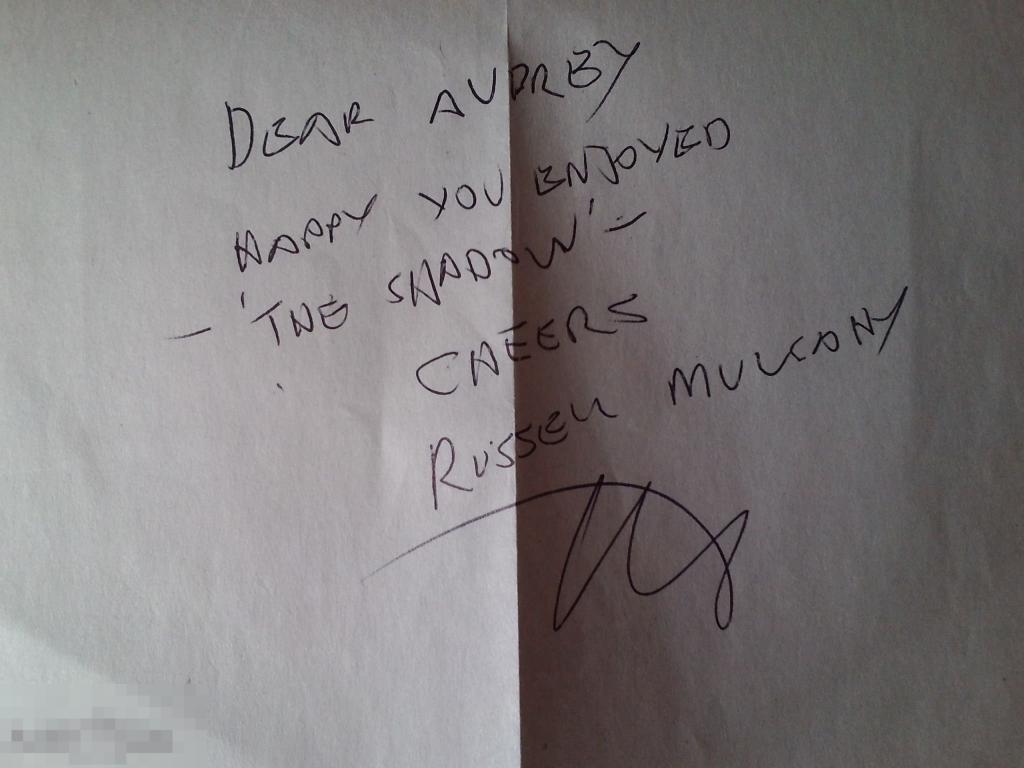 DEAR AUDREY
HAPPY YOU ENJOYED
— 'THE SHADOW' —
CHEERS
RUSSELL MULCAHY